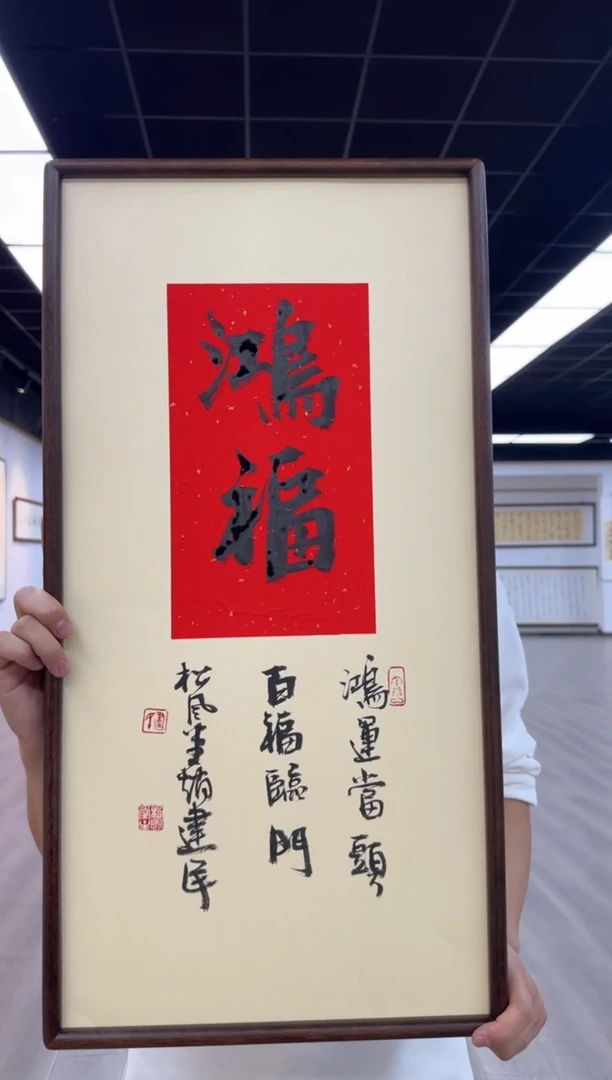 鴻福
鴻運當頭
百福臨門
松風堂炳建民